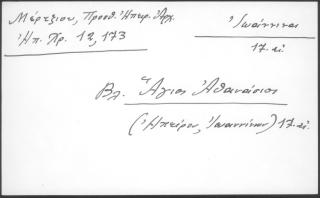 Μέρτζιου, Προσθ. Ἠπειρ. Ἀρχ.
Ἠπ. Χρ. 12, 173
Ἰωάννινα
17. αἰ.
Βλ. Ἅγιος Ἀθανάσιος
(Ἠπείρου, Ἰωαννίνων) 17. αἰ.